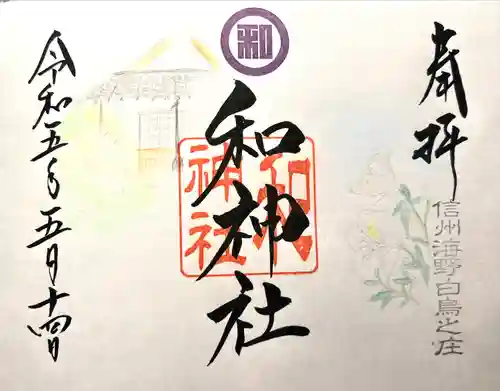 奉拝
信州海野・白鳥之庄
和
和神社
和神社
令和五年五月十四日